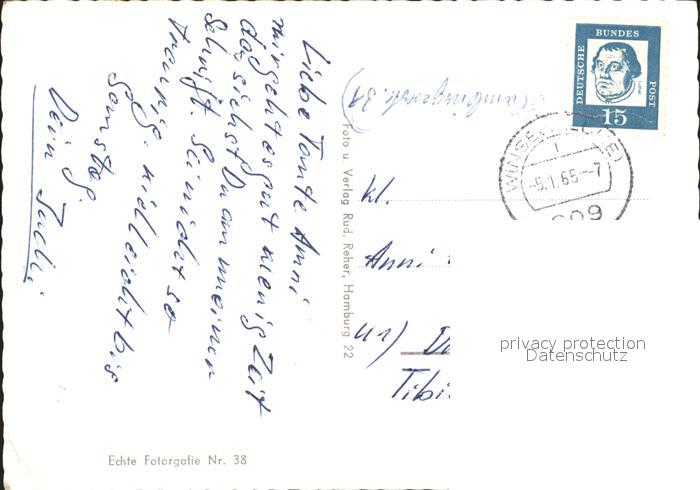 Liebe Tante Anni
mir geht es gut wenig Zeit
das siehst Du an meiner
Schrift. Sei nicht so
traurig. vielleicht bis
Samstag.
Dein
Foto u. Verlag Rud. Reher, Hamburg 22
Echte Fotorgafie Nr. 38
DEUTSCHE
BUNDES
POST
15
WINSEN
-5.1.65--7
Kl.
Anni
Tibi
privacy protection
Datenschutz